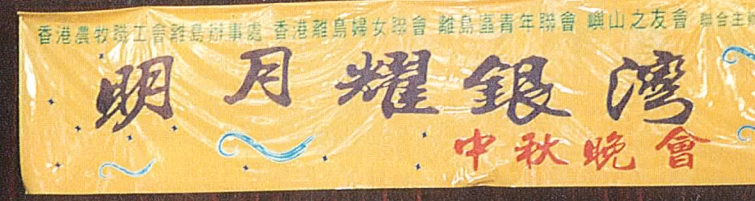 香港農牧職工會離島辦事處 香港離島婦女聯會 離島區青年聯會 嶼山之友會 聯合主
明月耀銀灣
中秋晚會